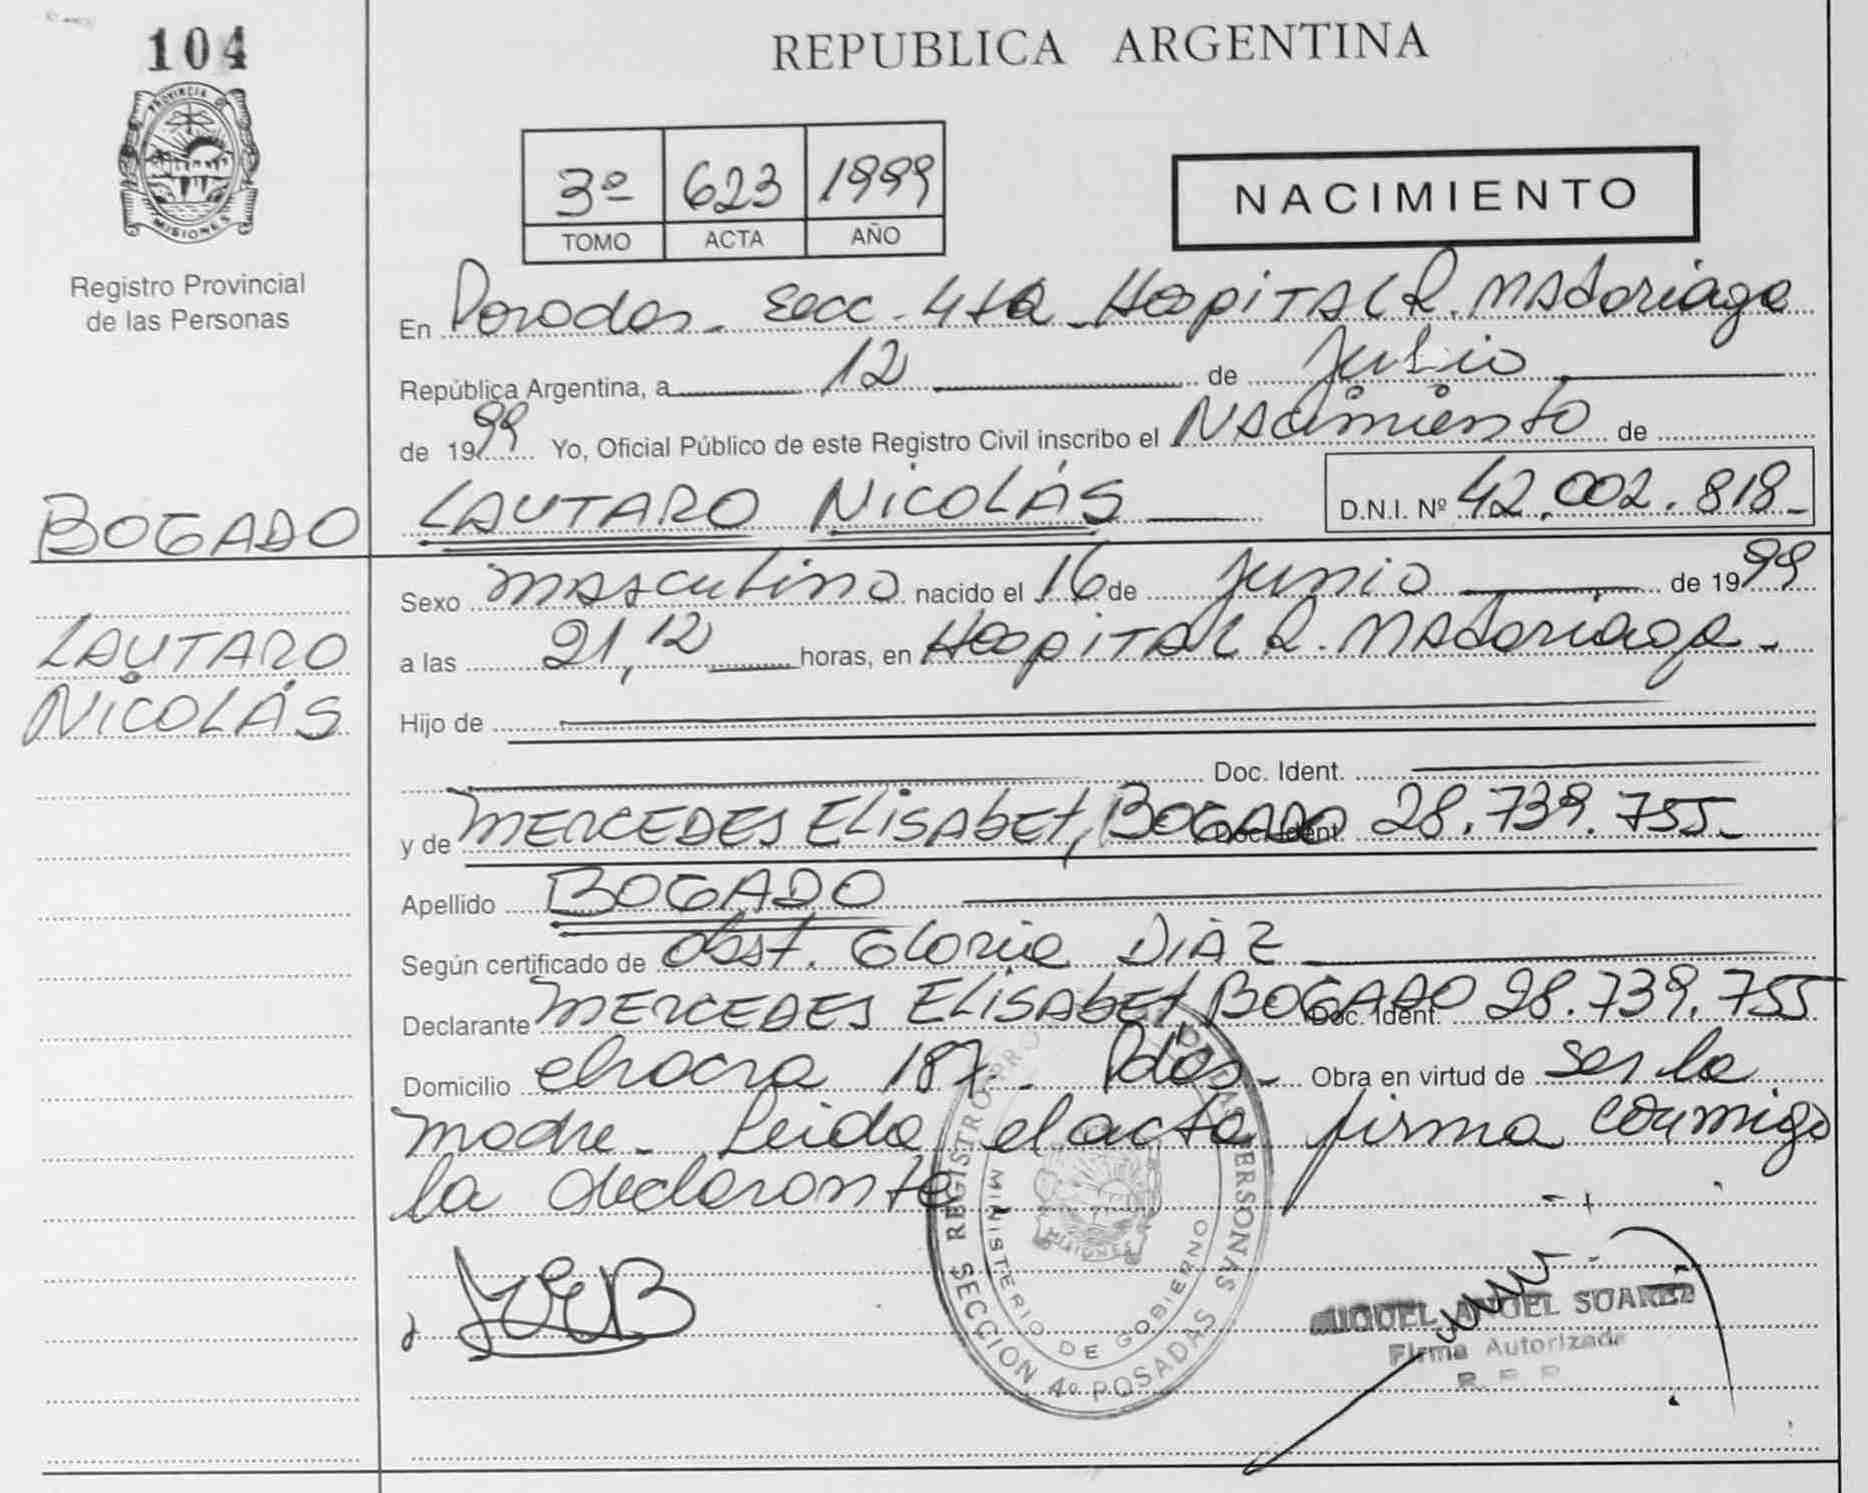 104
REPUBLICA ARGENTINA
PROVINCIA DE
MISIONES
Registro Provincial
de las Personas
3º 623 1999
TOMO ACTA AÑO
NACIMIENTO
En Posadas. Secc. 4ta Hospital R. Madariaga
República Argentina, a 12 de Julio
de 1999 Yo, Oficial Público de este Registro Civil inscribo el Nacimiento de
BOGADO LAUTARO NICOLÁS D.N.I. Nº 42.002.818-
LAUTARO
NICOLÁS
Sexo masculino nacido el 16 de Junio de 1999
a las 21,12 horas, en Hospital R. Madariaga-
Hijo de
Doc. Ident.
y de MERCEDES ELISABET, BOGADO Doc. Ident. 28.739.755-
Apellido BOGADO
Según certificado de obst. Gloria DIAZ
Declarante MERCEDES ELISABET BOGADO Doc. Ident. 28.739.755
Domicilio 187. Pdas- Obra en virtud de ser la
madre- Leida el acta firma conmigo
la declarante
REGISTRO PERSONAS
MINISTERIO DE GOBIERNO
MISIONES
SECCION 4º POSADAS
MIGUEL ANGEL SUAREZ
Firma Autorizada